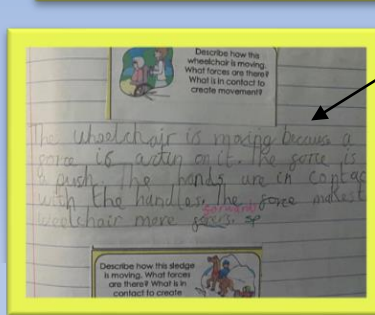 Describe how this
wheelchair is moving.
What forces are there?
What is in contact to
create movement?
The wheelchair is moving because a
force is actin on it. The force is
a push. The hands are in contac
with the handles. The force makest
forwards
weelchair move
Describe how this sledge
is moving. What forces
are there? What is in
contact to create